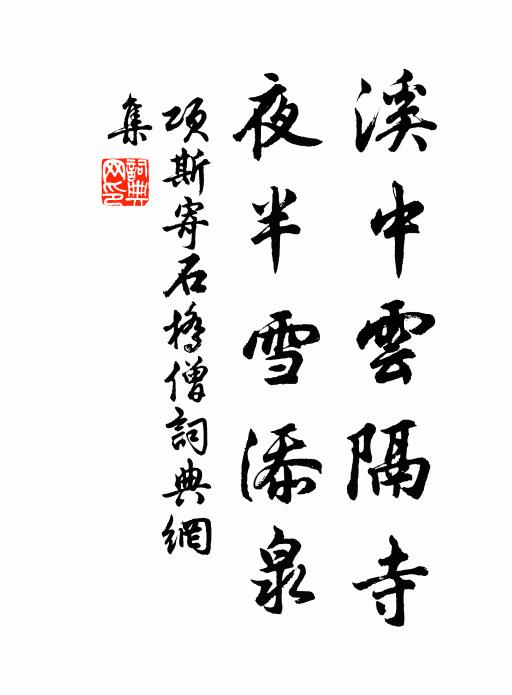 溪中雲隔寺
夜半雪添泉
項斯寄石橋僧詞典網
集
詞典
网印